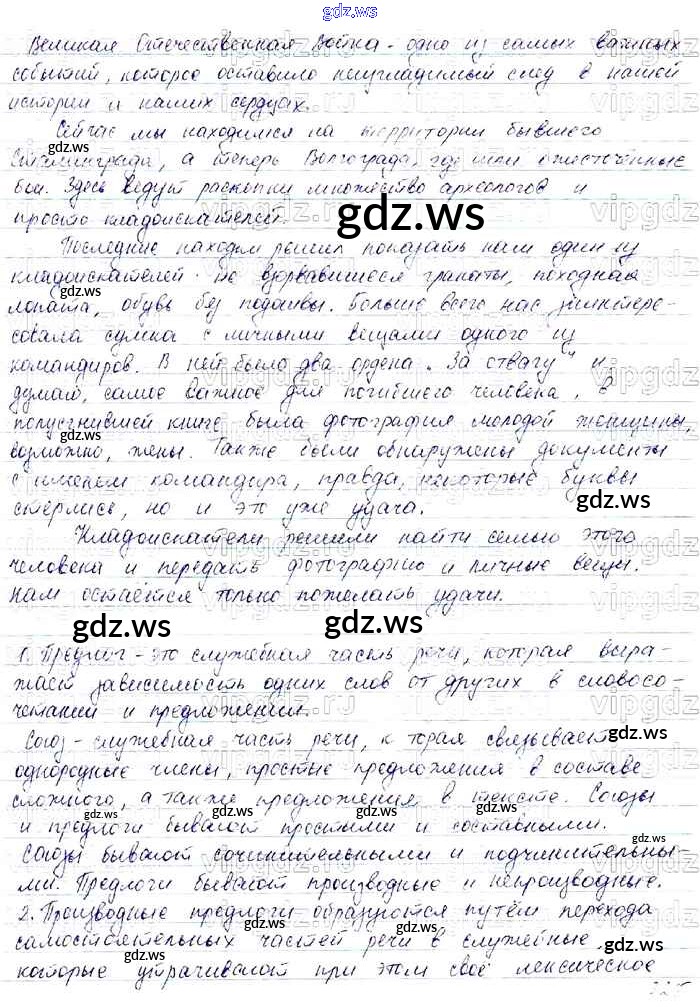 gdz.ws
Великая Отечественная Война - одно из самых важных
событий, которое оставило неизгладимый след в нашей
истории и наших сердцах.
Сейчас мы находимся на территории бывшего
Сталинграда, а теперь Волгограда, где шли ожесточённые
бои. Здесь ведут раскопки множество археологов и
просто кладоискателей.
gdz.ws
Последние находки решил показать нам один из
кладоискателей: не взорвавшиеся гранаты, походная
лопата, обувь без подошвы. Больше всего нас заинтере-
совала сумка с личными вещами одного из
командиров. В ней было два ордена „За отвагу" и
думаю, самое важное для погибшего человека, в
полусгнившей книге была фотография молодой женщины,
возможно, жены. Также были обнаружены документы
с именем командира, правда, некоторые буквы
стёрлись, но и это уже удача.
Кладоискатели решили найти семью этого
человека и передать фотографию и личные вещи.
Нам остаётся только пожелать удачи.
gdz.ws
gdz.ws
1. Предлог - это служебная часть речи, которая выра-
жает зависимость одних слов от других в словосо-
четании и предложении.
Союз - служебная часть речи, которая связывает
однородные члены, простые предложения в составе
сложного, а также предложения в тексте. Союзы
и предлоги бывают простыми и составными.
Союзы бывают сочинительными и подчинительны-
ми. Предлоги бывают производные и непроизводные.
2. Производные предлоги образуются путём перехода
самостоятельных частей речи в служебные,
которые утрачивают при этом своё лексическое